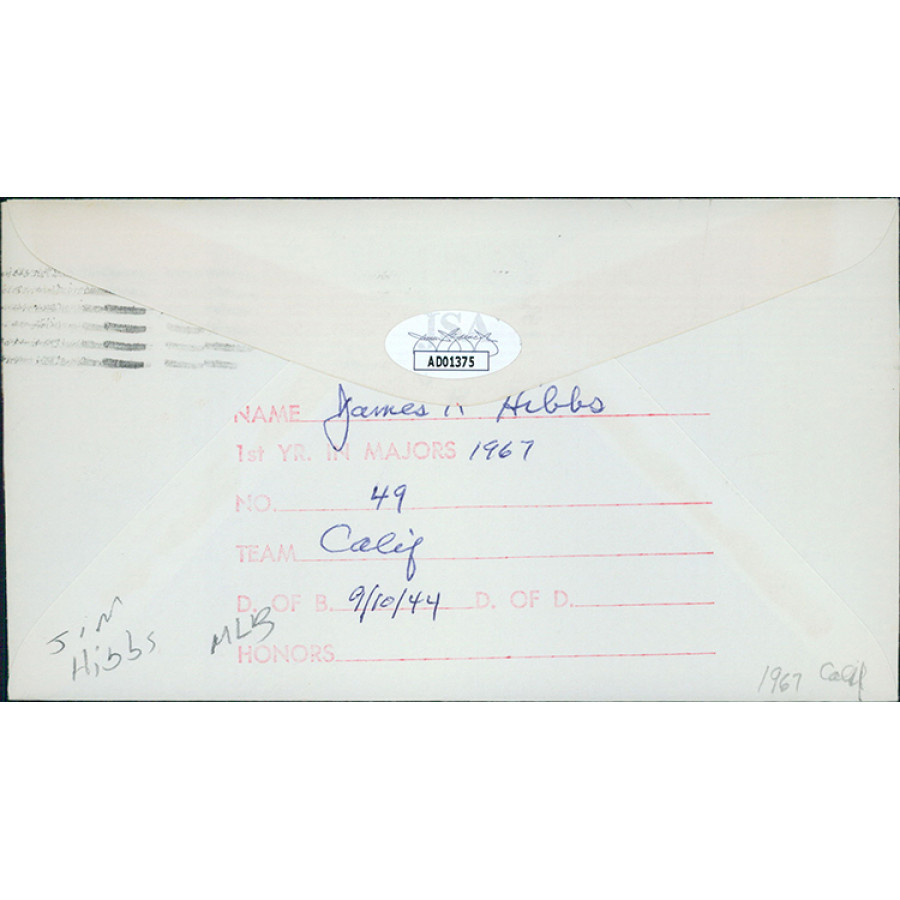 JSA
AD01375
NAME James K Hibbs
1st YR. IN MAJORS 1967
NO. 49
TEAM Calif
D. OF B. 9/10/44 D. OF D.
HONORS
Jim
Hibbs
MLB
1967 Calif